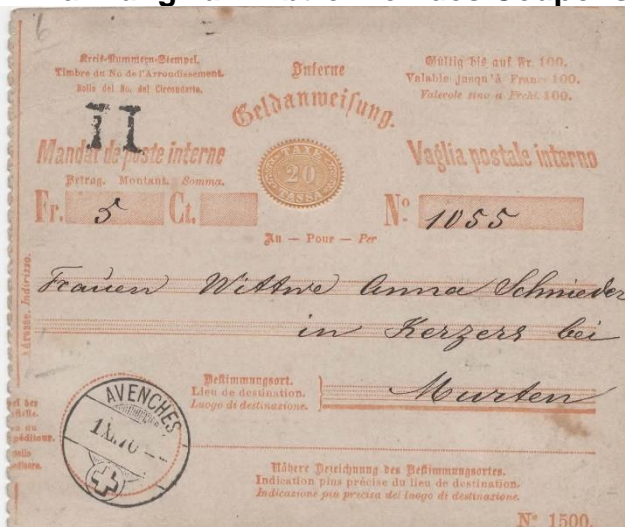 6
Kreis-Nummern-Stempel.
Timbre du No de l'Arrondissement.
Bollo del No. del Circondario.
II
Interne
Geldanweisung.
Gültig bis auf Fr. 100.
Valable jusqu'à Francs 100.
Valevole sino a Frchi. 100.
Mandat de poste interne
TAXE
20
TASSA
Vaglia postale interno
Betrag. Montant. Somma.
Fr. 5 Ct.
No 1055
An — Pour — Per
Adresse. Indirizzo.
Frauen Wittwe Anna Schnieder
in Kerzers bei
Bestimmungsort.
Lieu de destination.
Luogo di destinazione.
Murten
AVENCHES
Nähere Bezeichnung des Bestimmungsortes.
Indication plus précise du lieu de destination.
Indicazione piu precisa del luogo di destinazione.
No 1500.